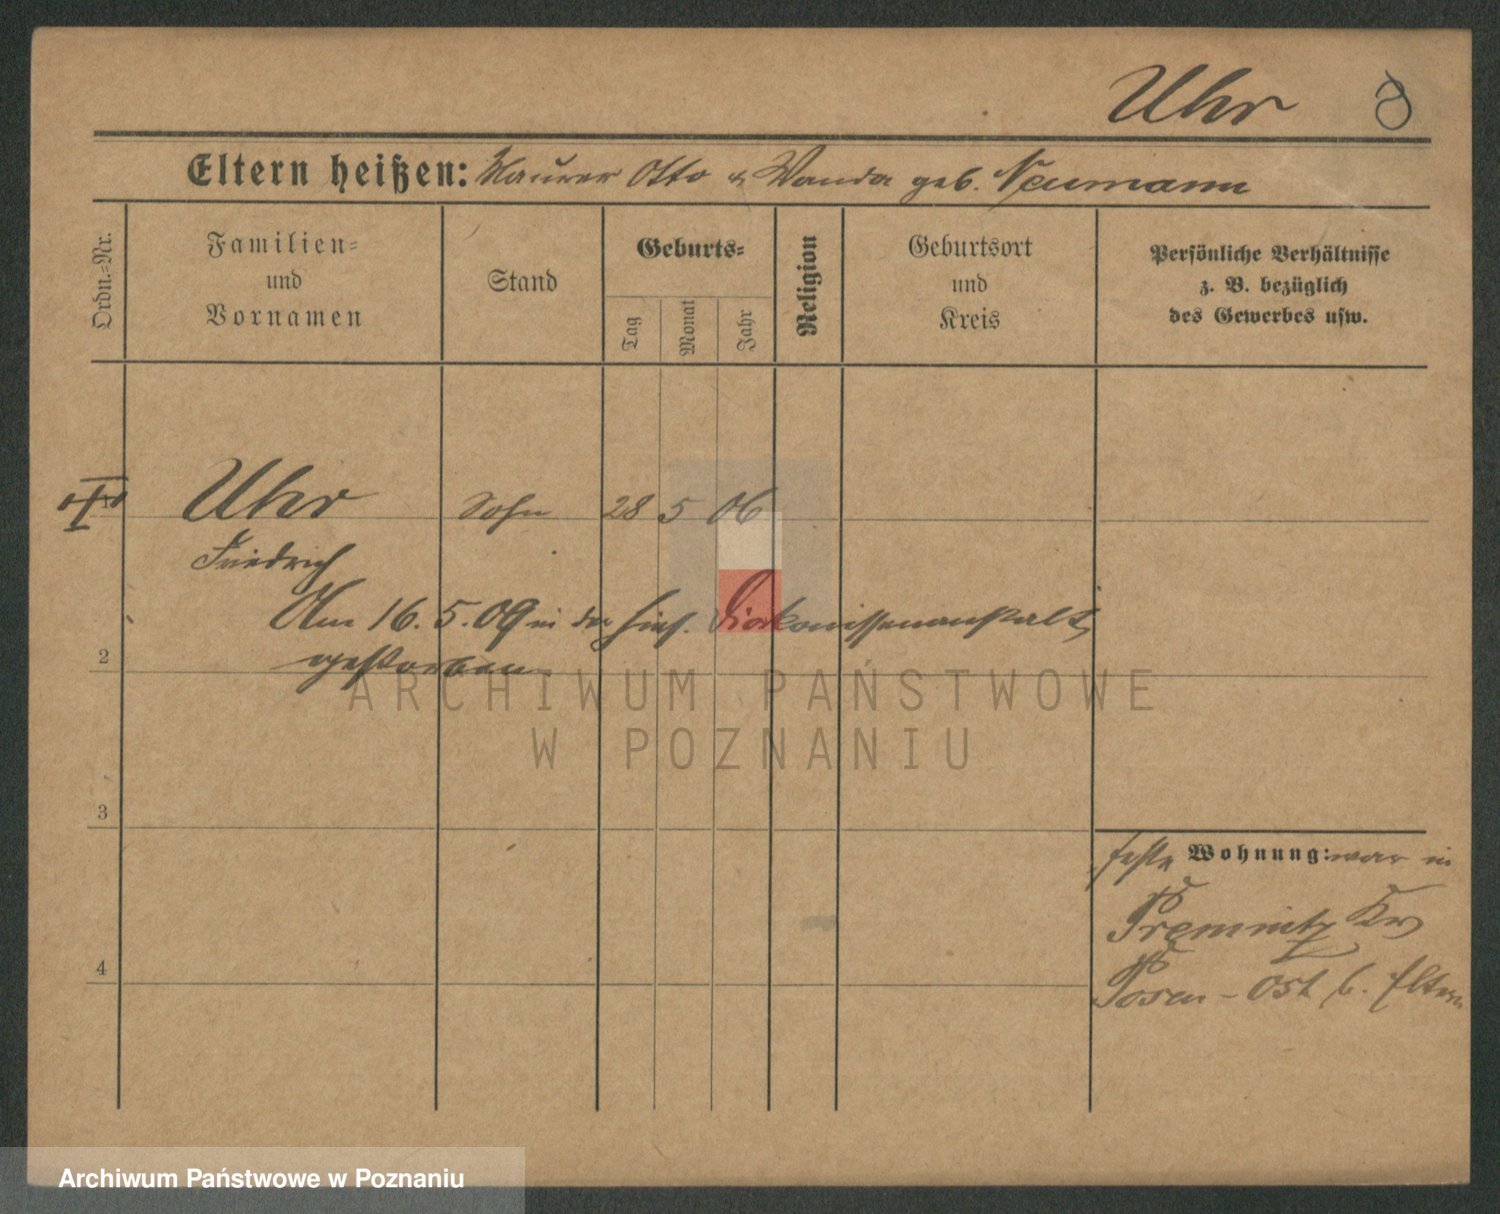 Uhr
Eltern heißen: Maurer Otto & Wanda geb. Neumann
Ordn.-Nr.
Familien-
und
Vornamen
Stand
Geburts-
Tag
Monat
Jahr
Religion
Geburtsort
und
Kreis
Persönliche Verhältnisse
z. B. bezüglich
des Gewerbes usw.
Uhr Sohn 28 5 06
Friedrich
Am 16. 5. 09 in der hies. Diakonissenanstalt
gestorben
2
ARCHIWUM PAŃSTWOWE
W POZNANIU
3
feste Wohnung: war in
Premnitz Krs
4
Posen-Ost b. Eltern
Archiwum Państwowe w Poznaniu